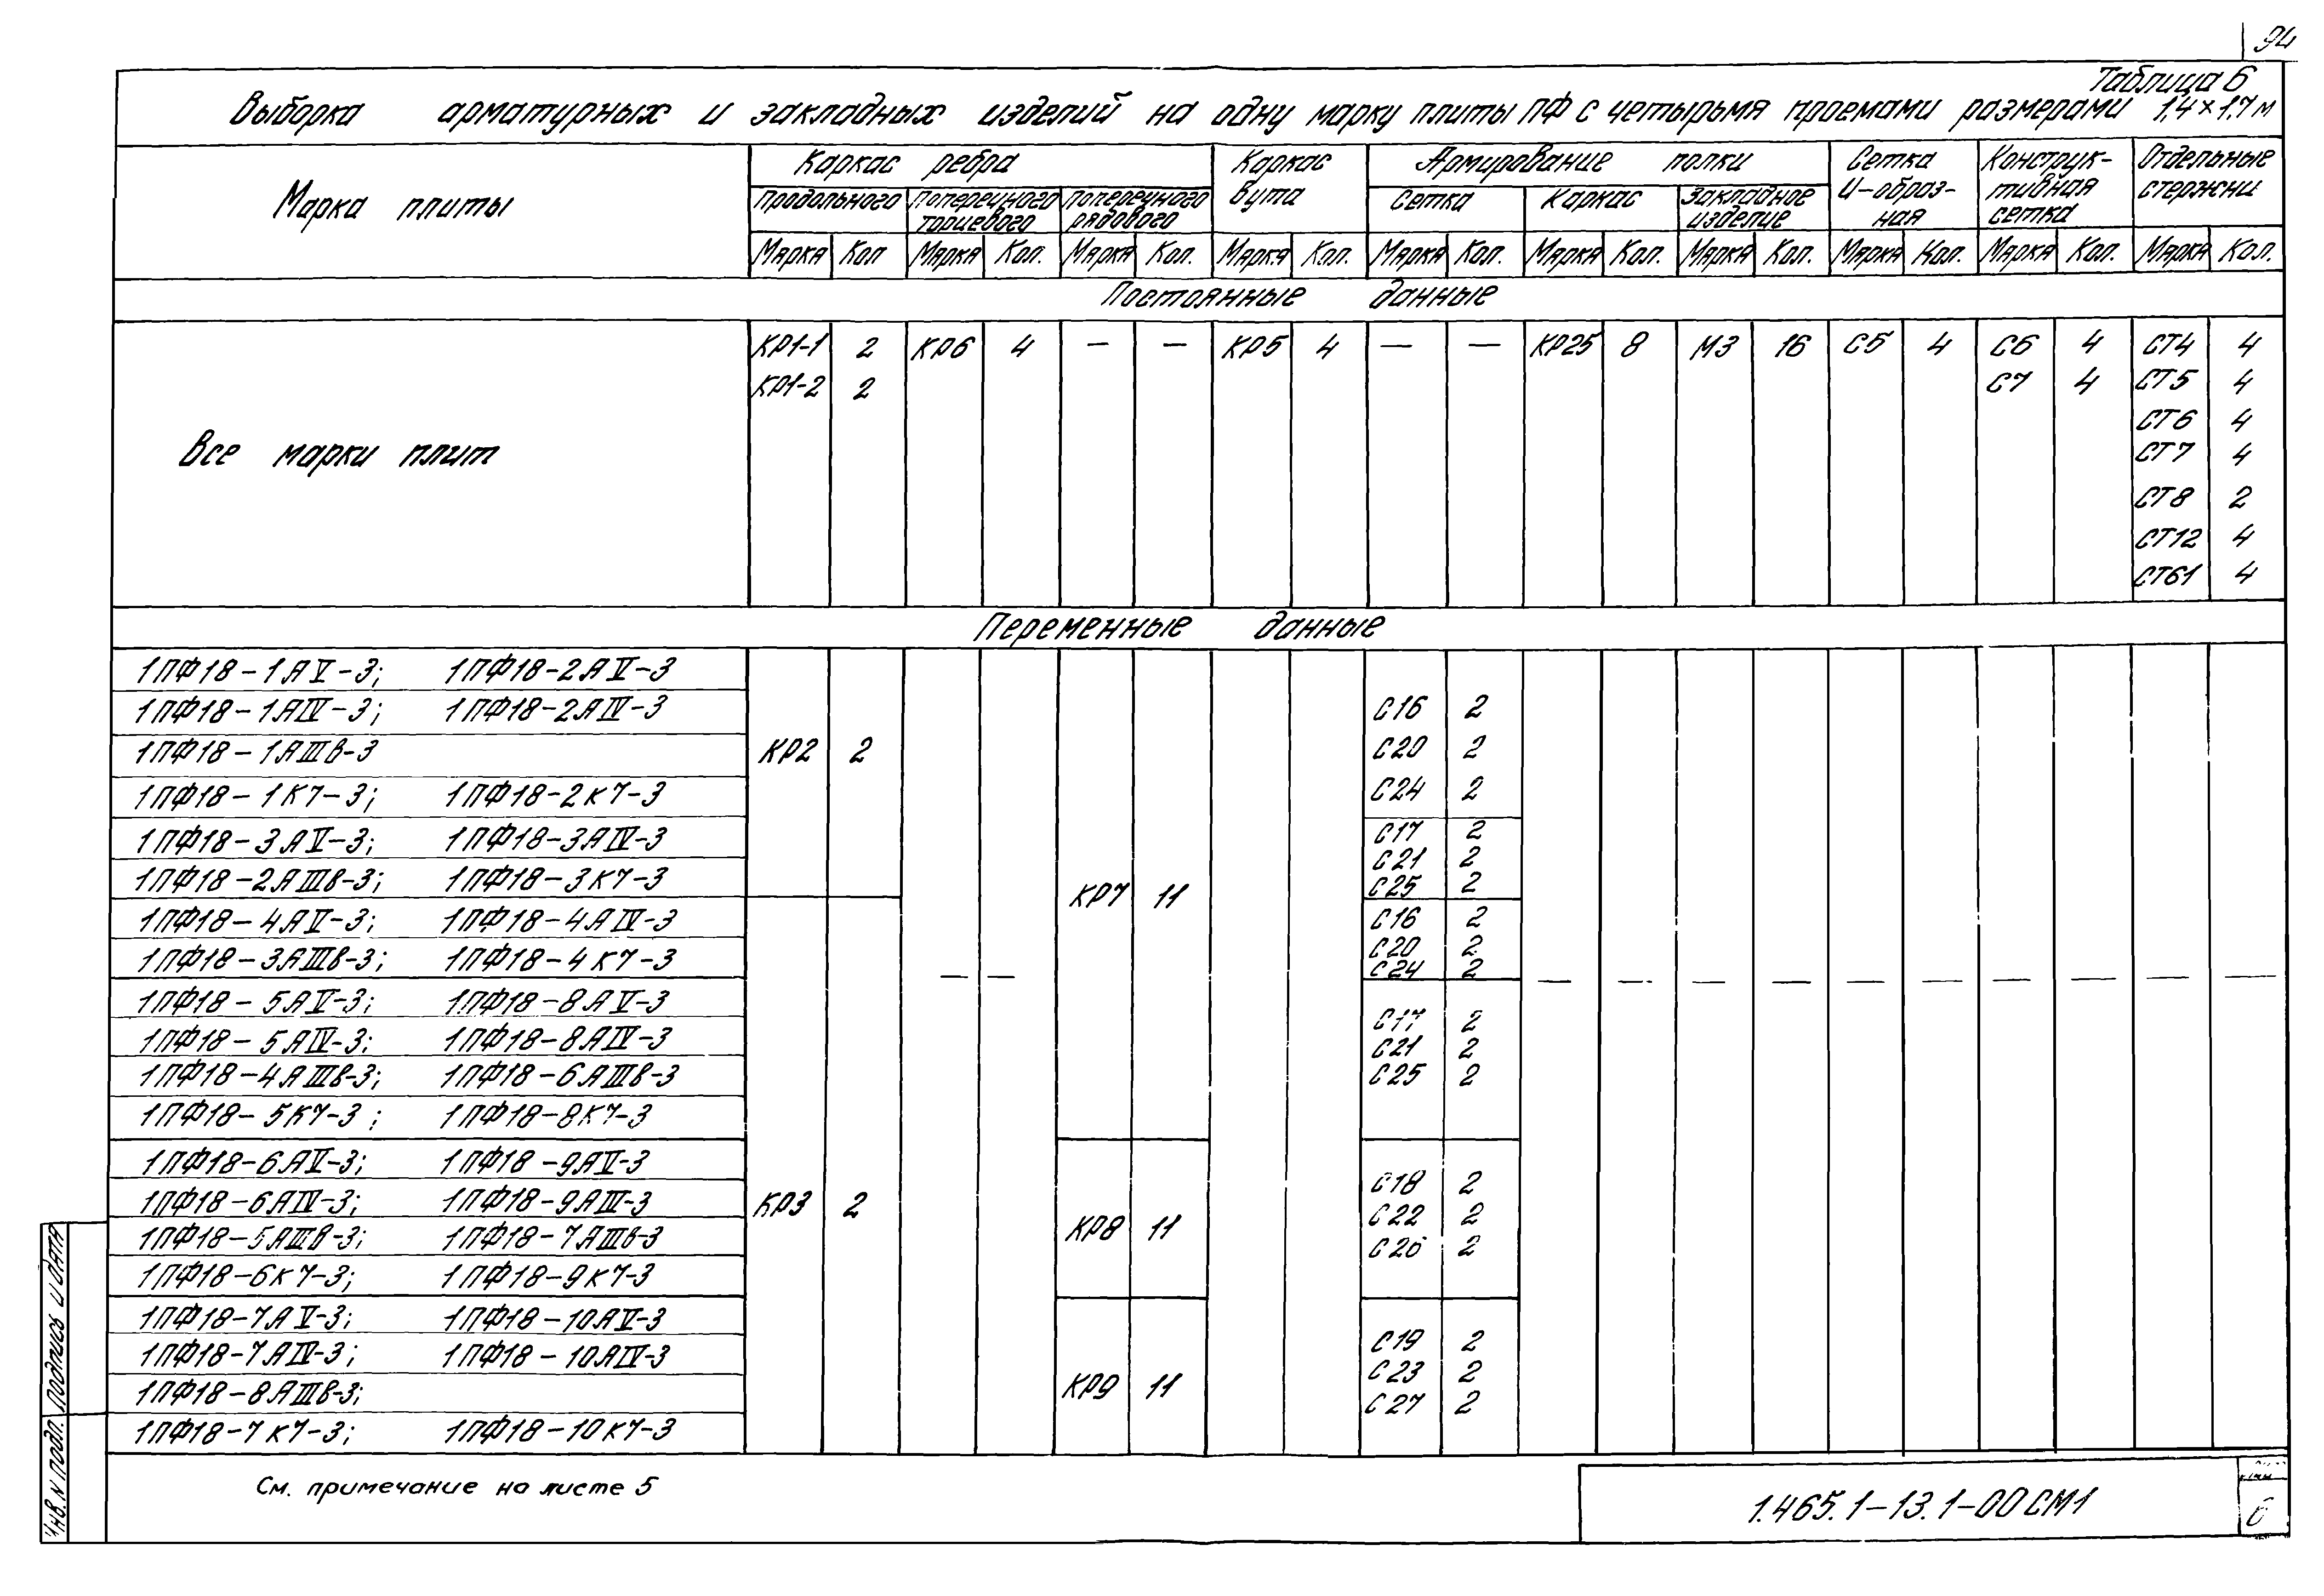 94
Таблица 6
Выборка арматурных и закладных изделий на одну марку плиты ПФ с четырьмя проемами размерами 1,4×1,7 м
Марка плиты
Каркас ребра
Каркас вута
Армирование полки
Сетка И-образ-ная
Конструк-тивная сетка
Отдельные стержни
продольного
поперечного торцевого
поперечного рядового
Сетка
Каркас
Закладное изделие
Марка Кол Марка Кол. Марка Кол. Марка Кол. Марка Кол. Марка Кол. Марка Кол. Марка Кол. Марка Кол. Марка Кол.
Постоянные данные
Все марки плит
КР1-1 2 КР6 4 — — КР5 4 — — КР25 8 М3 16 С5 4 С6 4 СТ4 4
КР1-2 2 С7 4 СТ5 4
СТ6 4
СТ7 4
СТ8 2
СТ12 4
СТ61 4
Переменные данные
1ПФ18-1АV-3; 1ПФ18-2АV-3
1ПФ18-1АIV-3; 1ПФ18-2АIV-3 С16 2
1ПФ18-1АIIIв-3 КР2 2 С20 2
1ПФ18-1К7-3; 1ПФ18-2К7-3 С24 2
1ПФ18-3АV-3; 1ПФ18-3АIV-3 С17 2
С21 2
1ПФ18-2АIIIв-3; 1ПФ18-3К7-3 С25 2
КР7 11
1ПФ18-4АV-3; 1ПФ18-4АIV-3 С16 2
С20 2
1ПФ18-3АIIIв-3; 1ПФ18-4К7-3 С24 2
— — — — — — — — — — — —
1ПФ18-5АV-3; 1ПФ18-8АV-3
С17 2
1ПФ18-5АIV-3; 1ПФ18-8АIV-3 С21 2
1ПФ18-4АIIIв-3; 1ПФ18-6АIIIв-3 С25 2
1ПФ18-5К7-3; 1ПФ18-8К7-3
1ПФ18-6АV-3; 1ПФ18-9АV-3
С18 2
1ПФ18-6АIV-3; 1ПФ18-9АIII-3 КР3 2
С22 2
1ПФ18-5АIIIв-3; 1ПФ18-7АIIIв-3 КР8 11
С26 2
1ПФ18-6К7-3; 1ПФ18-9К7-3
1ПФ18-7АV-3; 1ПФ18-10АV-3
С19 2
1ПФ18-7АIV-3; 1ПФ18-10АIV-3
С23 2
1ПФ18-8АIIIв-3; КР9 11
С27 2
1ПФ18-7К7-3; 1ПФ18-10К7-3
См. примечание на листе 5
1.465.1-13.1-00СМ1
6
Инв. N подл. Подпись и дата